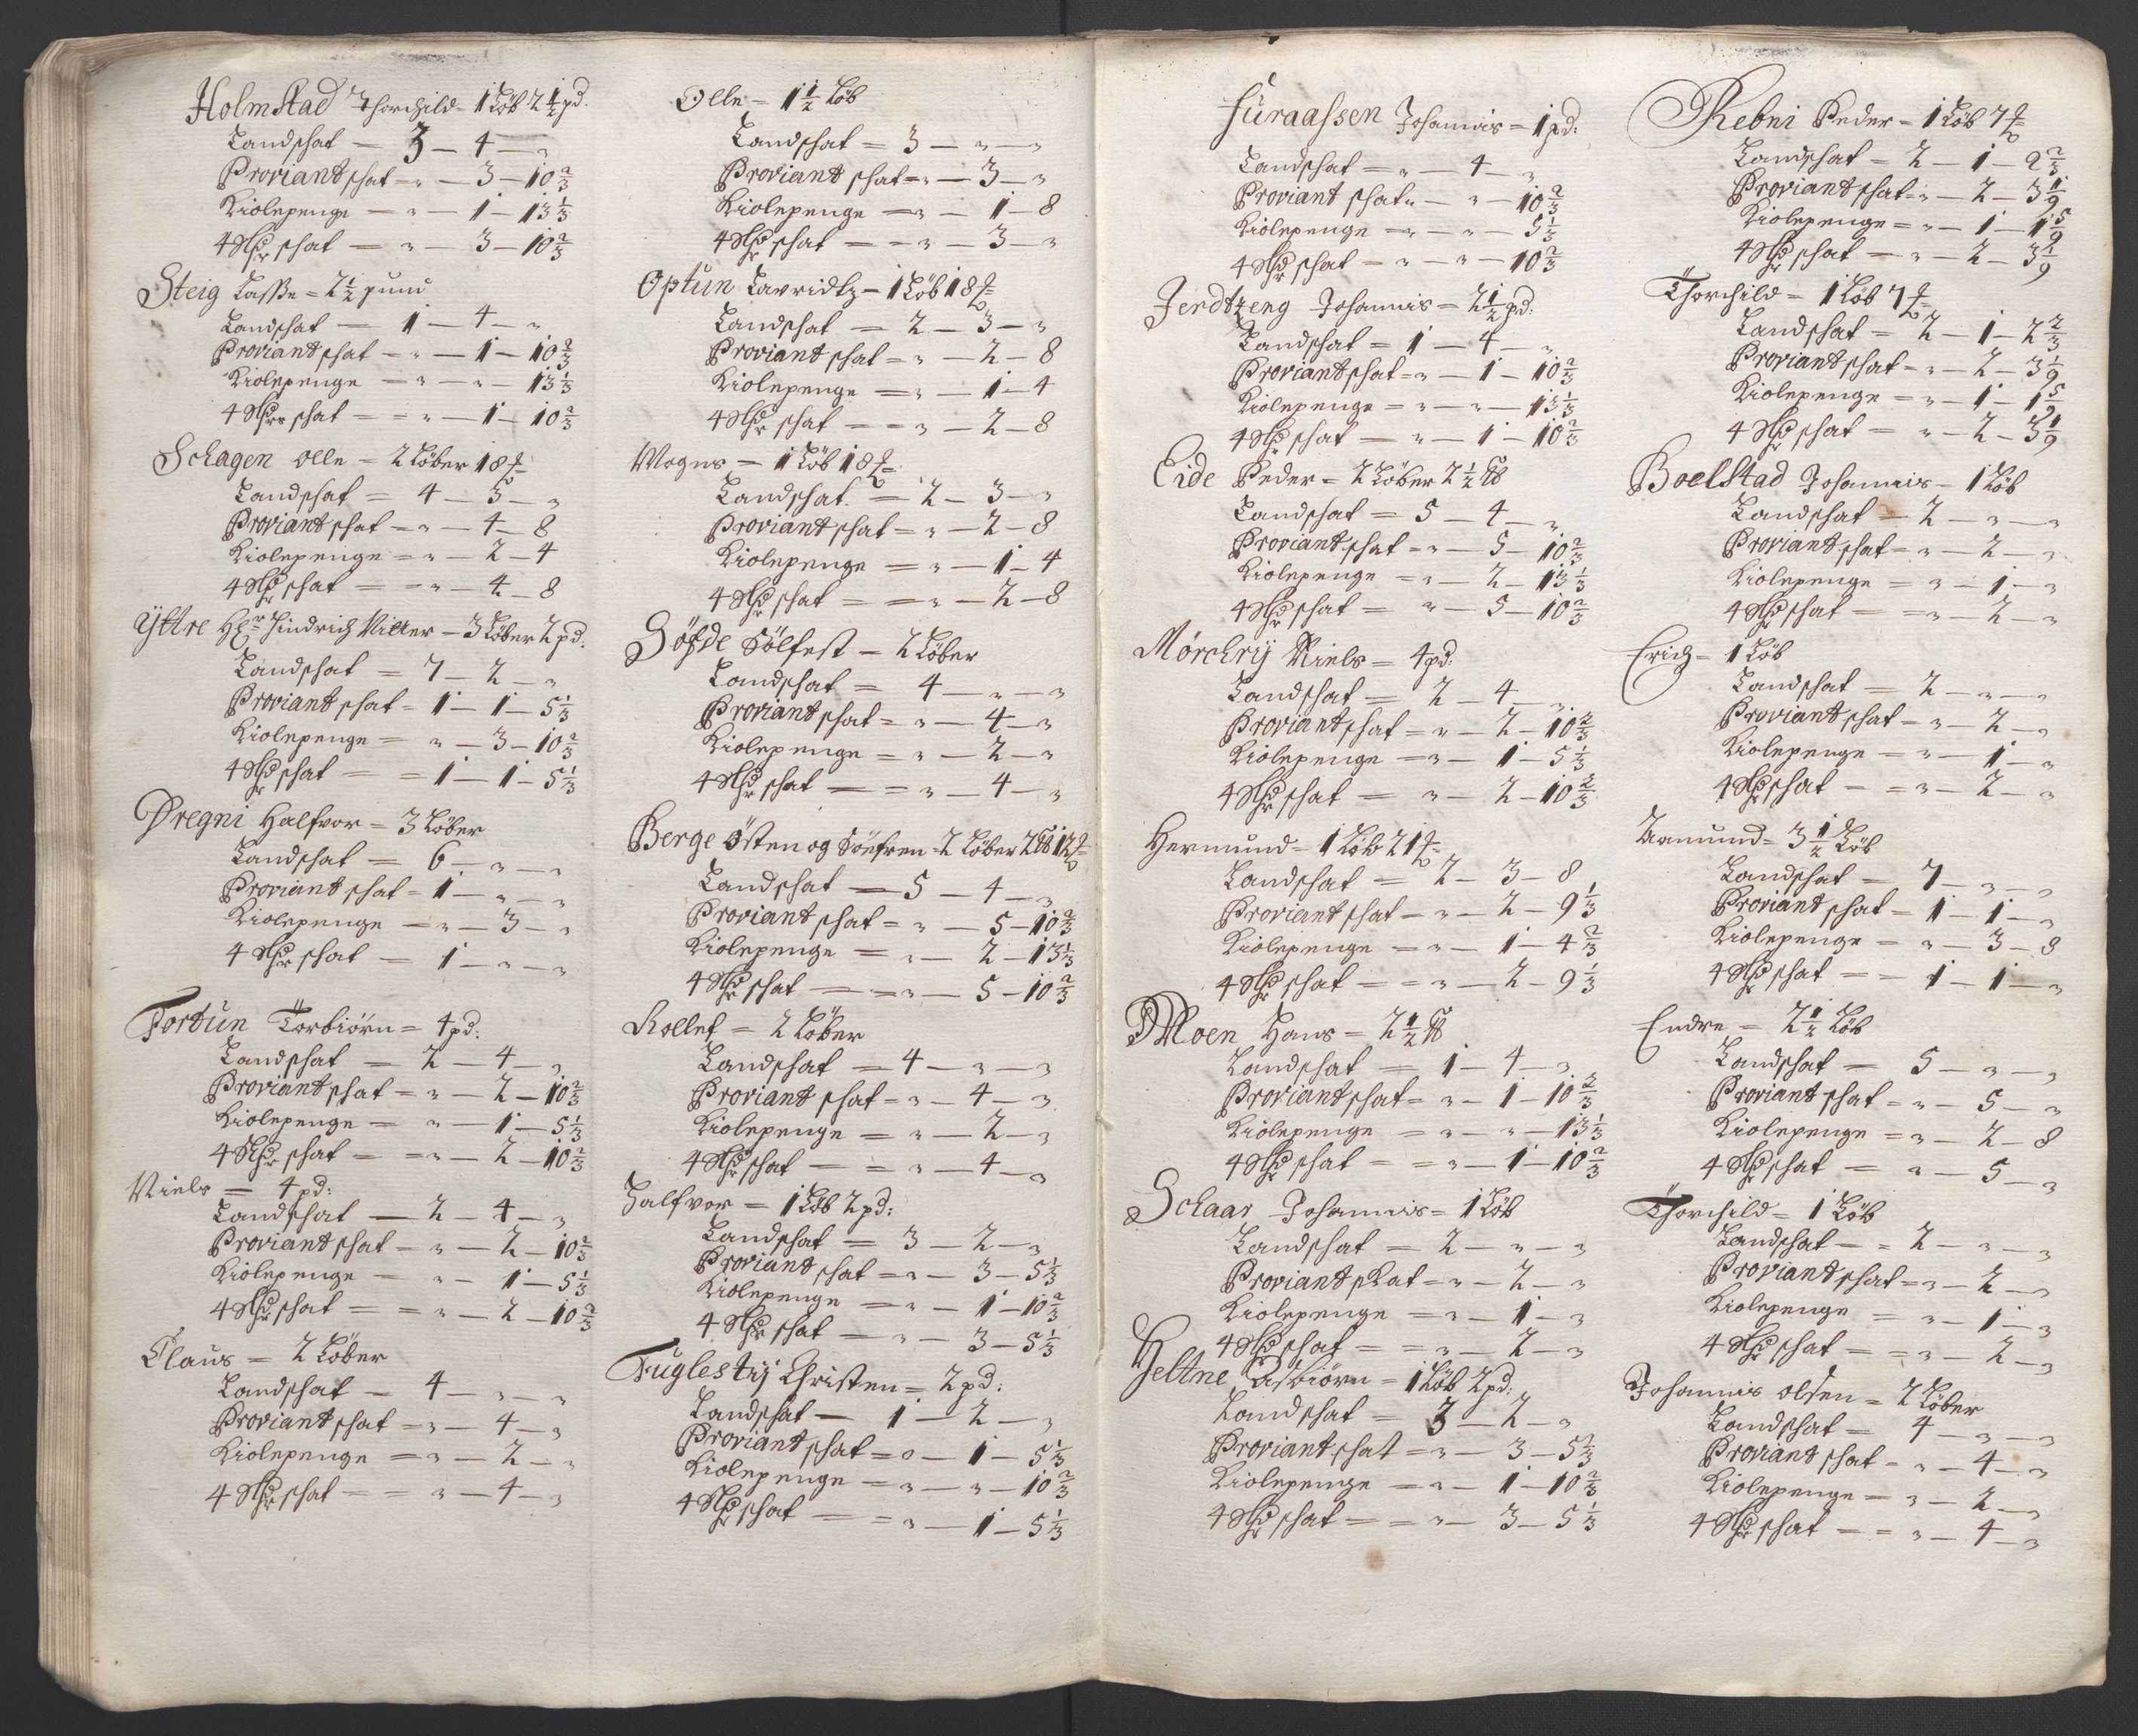 Holmstad Thorchild - 1 Løb 2 1/2 pd:
Landschat - 3 - 4 - "
Proviantschat = " - 3 - 10 2/3
Kiolepenge - " - 1 - 13 1/3
4 Rdr schat - " - 3 - 10 2/3
Steig Lasse = 2 1/2 pund
Landschat - 1 - 4 - "
Proviantschat - " - 1 - 10 2/3
Kiolepenge - " - " - 13 1/3
4 Rdr schat - = " - 1 - 10 2/3
Schagen Olle - 2 Løber 18
Landschat = 4 - 3 - "
Proviantschat = " - 4 - 8
Kiolepenge = " - 2 - 4
4 Rdr schat - = " - 4 - 8
Yttre Hr Hindrich - 3 Løber 2 pd:
Landschat = 7 - 2 - "
Proviantschat = 1 - 1 - 5 1/3
Kiolepenge = " - 3 - 10 2/3
4 Rdr schat - = 1 - 1 - 5 1/3
Dregni Halfvor = 3 Løber
Landschat = 6 - " - "
Proviantschat = 1 - " - "
Kiolepenge = " - 3 - "
4 Rdr schat - 1 - " - "
Fortun Torbiørn = 4 pd:
Landschat - 2 - 4 - "
Proviantschat = " - 2 - 10 2/3
Kiolepenge = " - 1 - 5 1/3
4 Rdr schat - = " - 2 - 10 2/3
Niels - 4 pd:
Landschat - 2 - 4 - "
Proviantschat - " - 2 - 10 2/3
Kiolepenge - " - 1 - 5 1/3
4 Rdr schat = = " - 2 - 10 2/3
Claus = 2 Løber
Landschat - 4 - " - "
Proviantschat = " - 4 - "
Kiolepenge = " - 2 - "
4 Rdr schat - = " - 4 - "
Olle - 1 1/2 Løb
Landschat = 3 - " - "
Proviantschat = " - 3 - "
Kiolepenge = " - 1 - 8
4 Rdr schat - = " - 3 - "
Optun Lavridtz - 1 Løb 18
Landschat = 2 - 3 - "
Proviantschat = " - 2 - 8
Kiolepenge = " - 1 - 4
4 Rdr schat - = " - 2 - 8
Mogns - 1 Løb 18
Landschat = 2 - 3 - "
Proviantschat = " - 2 - 8
Kiolepenge = " - 1 - 4
4 Rdr schat - = " - 2 - 8
Søfde Sølfest - 2 Løber
Landschat = 4 - " - "
Proviantschat = " - 4 - "
Kiolepenge = " - 2 - "
4 Rdr schat - = " - 4 - "
Berge Østen og Søefren = 2 Løber 2 12
Landschat - 5 - 4 - "
Proviantschat = " - 5 - 10 2/3
Kiolepenge = " - 2 - 13 1/3
4 Rdr schat - = " - 5 - 10 2/3
Rollef = 2 Løber
Landschat = 4 - " - "
Proviantschat = " - 4 - "
Kiolepenge = " - 2 - "
4 Rdr schat - = " - 4 - "
Halfvor = 1 Løb 2 pd:
Landschat = 3 - 2 - "
Proviantschat = " - 3 - 5 1/3
Kiolepenge = " - 1 - 10 2/3
4 Rdr schat - " - 3 - 5 1/3
Fuglestij Christen = 2 pd:
Landschat - 1 - 2 - "
Proviantschat = " - 1 - 5 1/3
Kiolepenge = " - " - 10 2/3
4 Rdr schat - = " - 1 - 5 1/3
Furaassen Johannis = 1 pd:
Landschat = " - 4 - "
Proviantschat " - " - 10 2/3
Kiolepenge = " - " - 5 1/3
4 Rdr schat - " - " - 10 2/3
Jerdtzeng Johannis = 2 1/2 pd:
Landschat = 1 - 4 - "
Proviantschat = " - 1 - 10 2/3
Kiolepenge = " - " - 13 1/3
4 Rdr schat - " - 1 - 10 2/3
Eide Peder = 2 Løber 2 1/2
Landschat = 5 - 4 - "
Proviantschat = " - 5 - 10 2/3
Kiolepenge = " - 2 - 13 1/3
4 Rdr schat - " - 5 - 10 2/3
Mørchrij Niels = 4 pd:
Landschat = 2 - 4 - "
Proviantschat = " - 2 - 10 2/3
Kiolepenge = " - 1 - 5 1/3
4 Rdr schat - " - 2 - 10 2/3
Hermund = 1 Løb 21
Landschat = 2 - 3 - 8
Proviantschat - " - 2 - 9 1/3
Kiolepenge = " - 1 - 4 2/3
4 Rdr schat - = " - 2 - 9 1/3
Moen Hans = 2 1/2
Landschat = 1 - 4 - "
Proviantschat = " - 1 - 10 2/3
Kiolepenge = " - " - 13 1/3
4 Rdr schat - = " - 1 - 10 2/3
Schaar Johannis - 1 Løb
Landschat = 2 - " - "
Proviantschat = " - 2 - "
Kiolepenge = " - 1 - "
4 Rdr schat = = " - 2 - "
Heltne Asbiørn = 1 Løb 2 pd:
Landschat = 3 - 2 - "
Proviantschat = " - 3 - 5 1/3
Kiolepenge = " - 1 - 10 2/3
4 Rdr schat = = " - 3 - 5 1/3
Rebni Peder - 1 Løb 7
Landschat = 2 - 1 - 2 2/3
Proviantschat = " - 2 - 3 1/9
Kiolepenge = " - 1 - 1 5/9
4 Rdr schat - " - 2 - 3 1/9
Thorchild - 1 Løb 7
Landschat = 2 - 1 - 2 2/3
Proviantschat = " - 2 - 3 1/9
Kiolepenge = " - 1 - 1 5/9
4 Rdr schat = " - 2 - 3 1/9
Boelstad Johannis - 1 Løb
Landschat - 2 - " - "
Proviantschat = " - 2 - "
Kiolepenge = " - 1 - "
4 Rdr schat - = " - 2 - "
Erich - 1 Løb
Landschat - 2 - " - "
Proviantschat - " - 2 - "
Kiolepenge = " - 1 - "
4 Rdr schat - = " - 2 - "
Aamund = 3 1/2 Løb
Landschat = 7 - " - "
Proviantschat = 1 - 1 - "
Kiolepenge = " - 3 - 8
4 Rdr schat - - 1 - 1 - "
Endre - 2 1/2 Løb
Landschat - 5 - " - "
Proviantschat = " - 5 - "
Kiolepenge = " - 2 - 8
4 Rdr schat - " - 5 - "
Thorchild = 1 Løb
Landschat - = 2 - " - "
Proviantschat = " - 2 - "
Kiolepenge = " - 1 - "
4 Rdr schat - = " - 2 - "
Johannis Olsen = 2 Løber
Landschat = 4 - " - "
Proviantschat - " - 4 - "
Kiolepenge - " - 2 - "
4 Rdr schat - = " - 4 - "